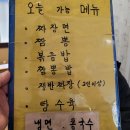 오늘 가능 메뉴
· 짜장면
· 짬뽕
· 볶음밥
· 짬뽕밥
· 쟁반짜장 (2인이상)
· 탕수육
냉면 콩국수